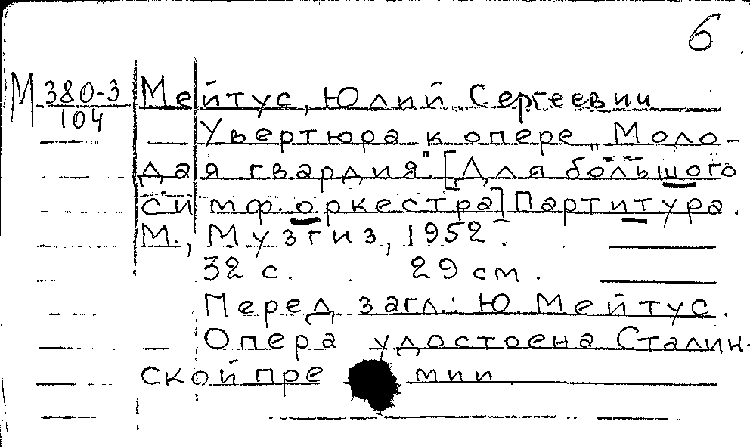 6
М 380-3 Мейтус, Юлий Сергеевич
104
Увертюра к опере "Моло-
дая гвардия". [Для большого
симф. оркестра] Партитура.
М., Музгиз, 1952.
32 с. 29 см.
Перед загл.: Ю Мейтус.
Опера удостоена Сталин-
ской премии